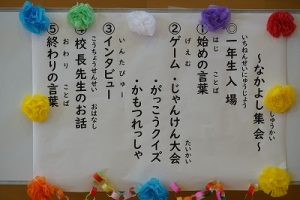 ～なかよし集会～
しゅうかい
◎一年生入場
いちねんせいにゅうじょう
①始めの言葉
はじ ことば
②ゲーム・じゃんけん大会
げえむ たいかい
・がっこうクイズ
・かもつれっしゃ
③インタビュー
いんたびゅー
④校長先生のお話
こうちょうせんせい おはなし
⑤終わりの言葉
おわり ことば